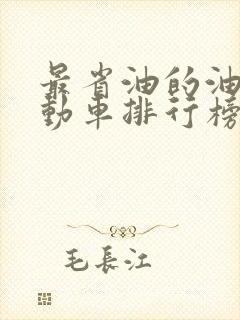 最省油的油
動車排行榜
毛長江